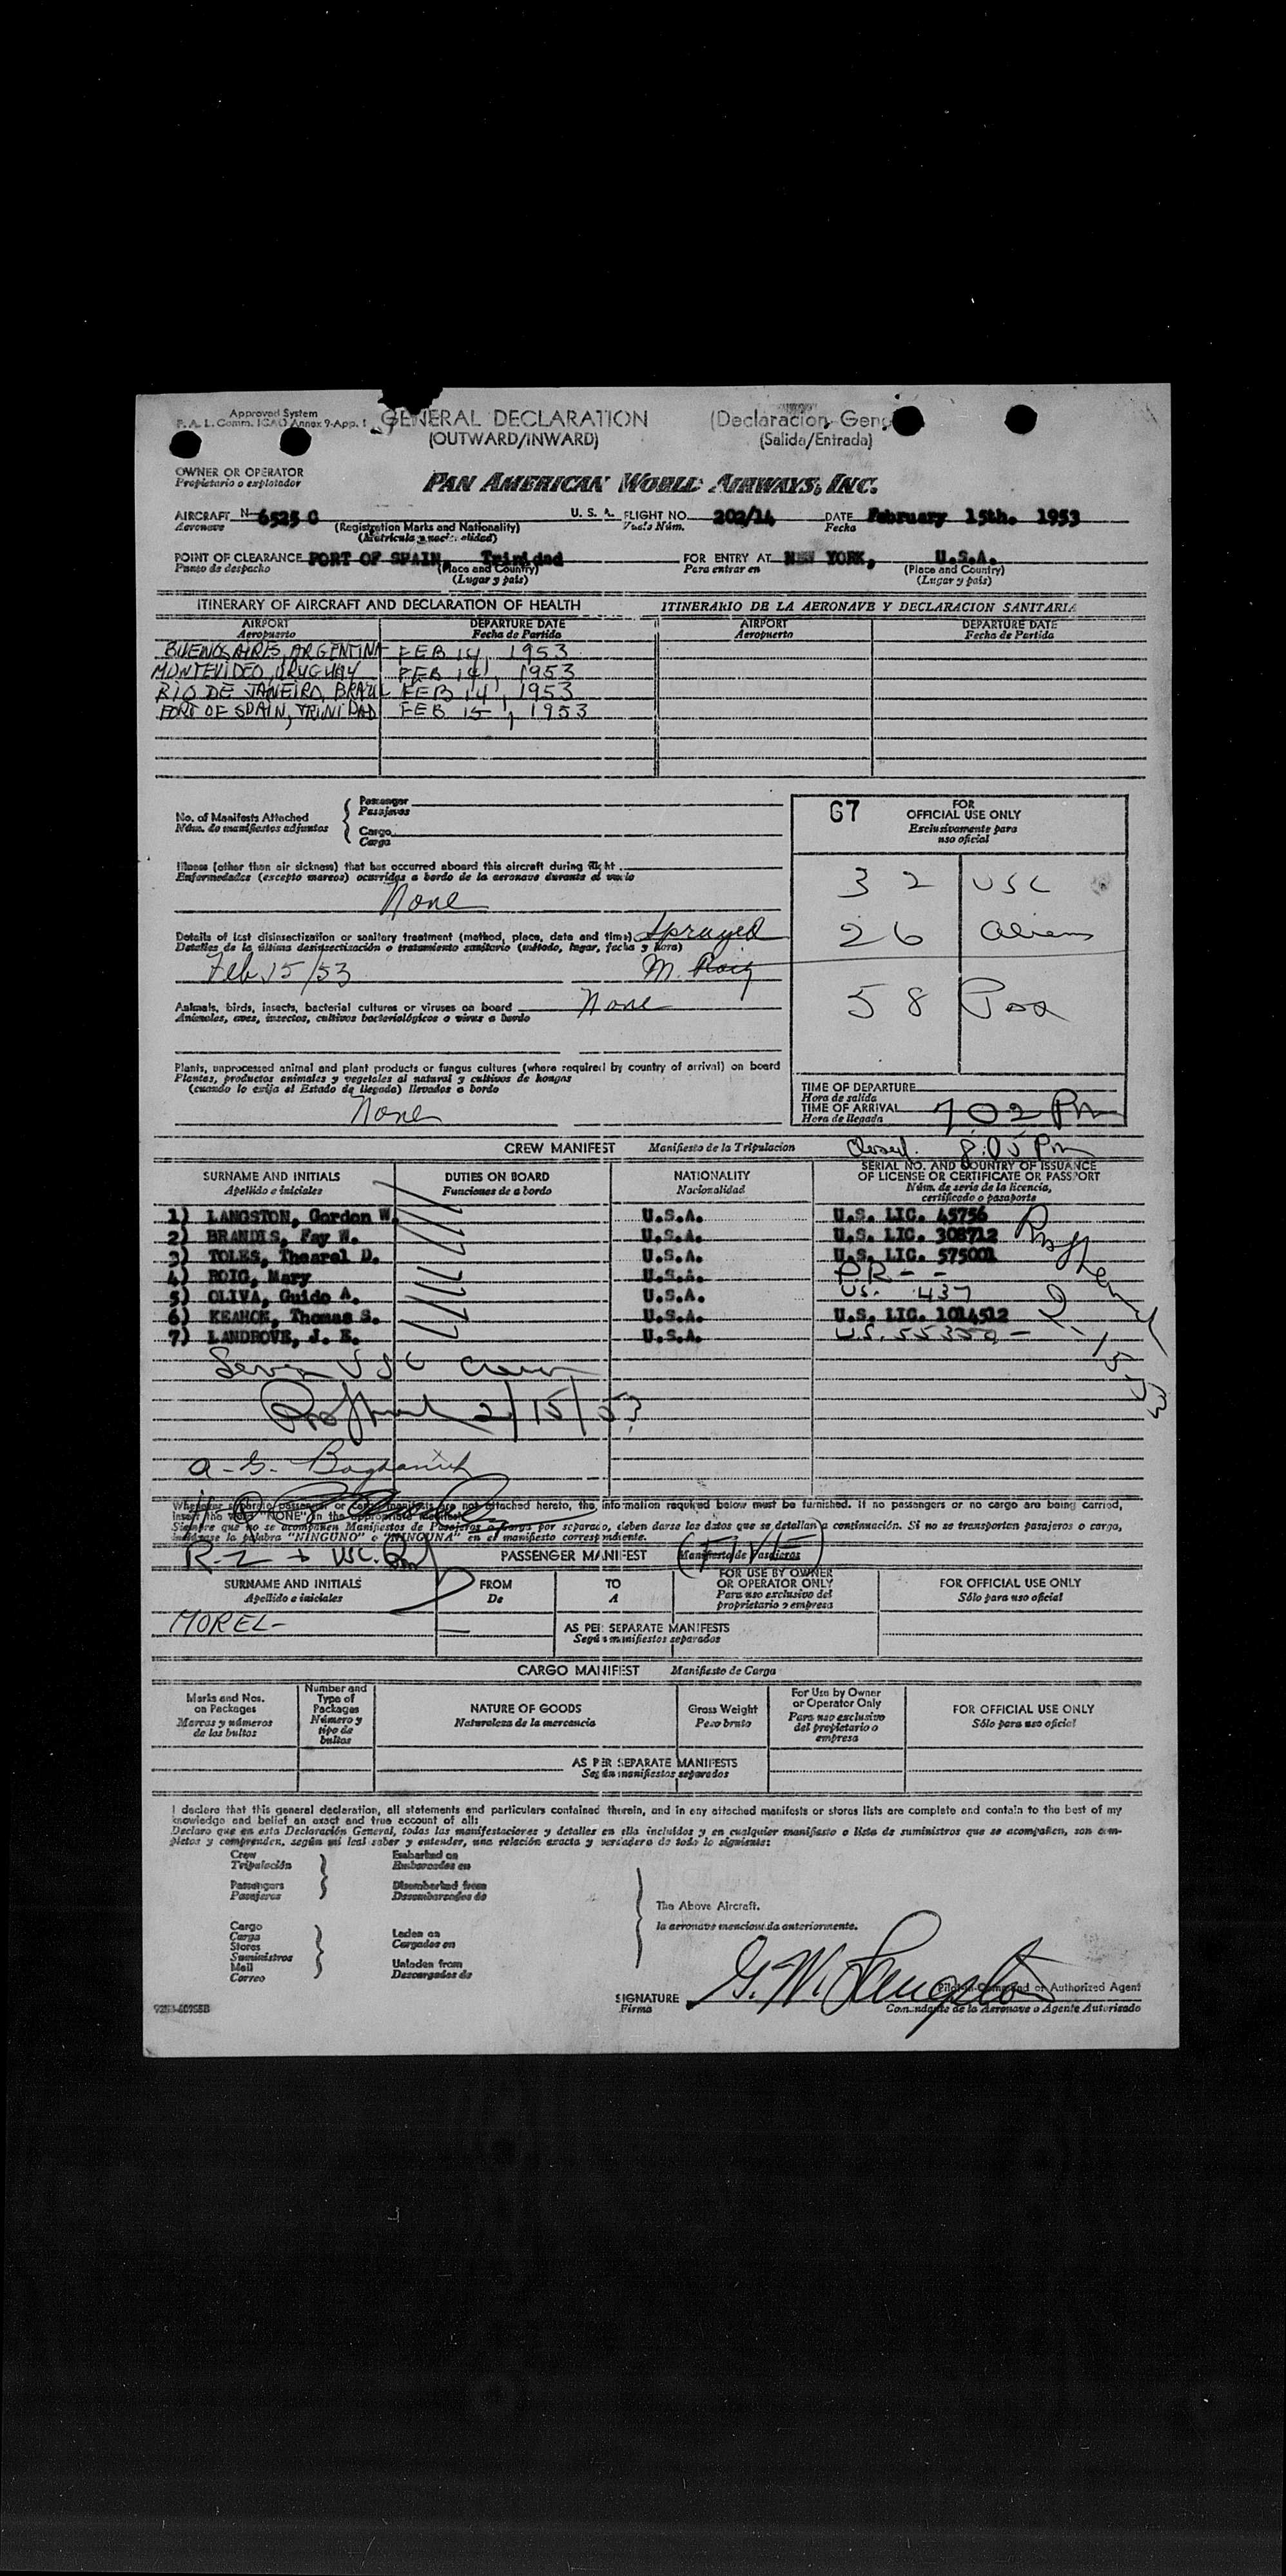 Approved System
F. A. L. Comm. ICAO Annex 9-App. 1
GENERAL DECLARATION (Declaracion General
(OUTWARD/INWARD) (Salida/Entrada)
OWNER OR OPERATOR
Propietario o explotador
PAN AMERICAN WORLD AIRWAYS, INC.
AIRCRAFT N-6525 C U. S. A. FLIGHT NO. 202/14 DATE February 15th. 1953
Aeronave (Registration Marks and Nationality) Vuelo Núm. Fecha
(Matricula y nacionalidad)
POINT OF CLEARANCE PORT OF SPAIN, Trinidad FOR ENTRY AT NEW YORK, U.S.A.
Punto de despacho (Place and Country) Para entrar en (Place and Country)
(Lugar y país) (Lugar y país)
ITINERARY OF AIRCRAFT AND DECLARATION OF HEALTH ITINERARIO DE LA AERONAVE Y DECLARACION SANITARIA
AIRPORT DEPARTURE DATE AIRPORT DEPARTURE DATE
Aeropuerto Fecha de Partida Aeropuerto Fecha de Partida
BUENOS AIRES, ARGENTINA FEB 14, 1953
MONTEVIDEO, URUGUAY FEB 14, 1953
RIO DE JANEIRO, BRAZIL FEB 14, 1953
PORT OF SPAIN, TRINIDAD FEB 15, 1953
No. of Manifests Attached
Núm. de manifiestos adjuntos
Passenger
Pasajeros
Cargo
Carga
G7 FOR
OFFICIAL USE ONLY
Exclusivamente para
uso oficial
32 USC
26 aliens
58 Pax
Illness (other than air sickness) that has occurred aboard this aircraft during flight
Enfermedades (excepto mareos) ocurridas a bordo de la aeronave durante el vuelo
None
Details of last disinsectization or sanitary treatment (method, place, date and time) Sprayed
Detalles de la última desinsectización o tratamiento sanitario (método, lugar, fecha y hora)
Feb 15/53 M. Roig
Animals, birds, insects, bacterial cultures or viruses on board None
Animales, aves, insectos, cultivos bacteriológicos o virus a bordo
Plants, unprocessed animal and plant products or fungus cultures (where required by country of arrival) on board
Plantas, productos animales y vegetales al natural y cultivos de hongos
(cuando lo exija el Estado de llegada) llevados a bordo
None
TIME OF DEPARTURE
Hora de salida
TIME OF ARRIVAL 702 PM
Hora de llegada
CREW MANIFEST Manifiesto de la Tripulacion Closed. 8:05 PM
SURNAME AND INITIALS DUTIES ON BOARD NATIONALITY SERIAL NO. AND COUNTRY OF ISSUANCE
OF LICENSE OR CERTIFICATE OR PASSPORT
Apellido e iniciales Funciones de a bordo Nacionalidad Núm. de serie de la licencia,
certificado o pasaporte
1) LANGSTON, Gordon W. U.S.A. U.S. LIC. 45756
2) BRANDIS, Fay W. U.S.A. U.S. LIC. 308712
3) TOLES, Thearel D. U.S.A. U.S. LIC. 575001
4) ROIG, Mary U.S.A. P.R - -
5) OLIVA, Guido A. U.S.A. US. 437
6) KEAHON, Thomas S. U.S.A. U.S. LIC. 1014512
7) LANDROVE, J. E. U.S.A. US. 55350 -
2-15-53
Seven USC Crew
2/15/53
Whenever separate passenger or cargo manifests are not attached hereto, the information required below must be furnished. If no passengers or no cargo are being carried,
insert the word "NONE" in the appropriate manifest.
Siempre que no se acompañen Manifiestos de Pasajeros o Carga por separado, deben darse los datos que se detallan a continuación. Si no se transportan pasajeros o carga,
indíquese la palabra "NINGUNO" o "NINGUNA" en el manifiesto correspondiente.
PASSENGER MANIFEST Manifiesto de Pasajeros (FIVE)
SURNAME AND INITIALS FROM TO FOR USE BY OWNER
OR OPERATOR ONLY FOR OFFICIAL USE ONLY
Apellido e iniciales De A Para uso exclusivo del
propietario o empresa Sólo para uso oficial
MOREL- AS PER SEPARATE MANIFESTS
Según manifiestos separados
CARGO MANIFEST Manifiesto de Carga
Marks and Nos.
on Packages
Marcas y números
de los bultos
Number and
Type of
Packages
Número y
tipo de
bultos
NATURE OF GOODS
Naturaleza de la mercancía
Gross Weight
Peso bruto
For Use by Owner
or Operator Only
Para uso exclusivo
del propietario o
empresa
FOR OFFICIAL USE ONLY
Sólo para uso oficial
AS PER SEPARATE MANIFESTS
Según manifiestos separados
I declare that this general declaration, all statements and particulars contained therein, and in any attached manifests or stores lists are complete and contain to the best of my
knowledge and belief an exact and true account of all:
Declaro que en esta Declaración General, todas las manifestaciones y detalles en ella incluidos y en cualquier manifiesto o lista de suministros que se acompañen, son com-
pletos y comprenden, según mi leal saber y entender, una relación exacta y verdadera de todo lo siguiente:
Crew
Tripulación
Passengers
Pasajeros
Embarked on
Embarcados en
Disembarked from
Desembarcados de
Cargo
Carga
Stores
Suministros
Mail
Correo
Laden on
Cargados en
Unladen from
Descargados de
The Above Aircraft.
la aeronave mencionada anteriormente.
SIGNATURE G. W. Langston Pilot in Command or Authorized Agent
Firma Comandante de la Aeronave o Agente Autorizado